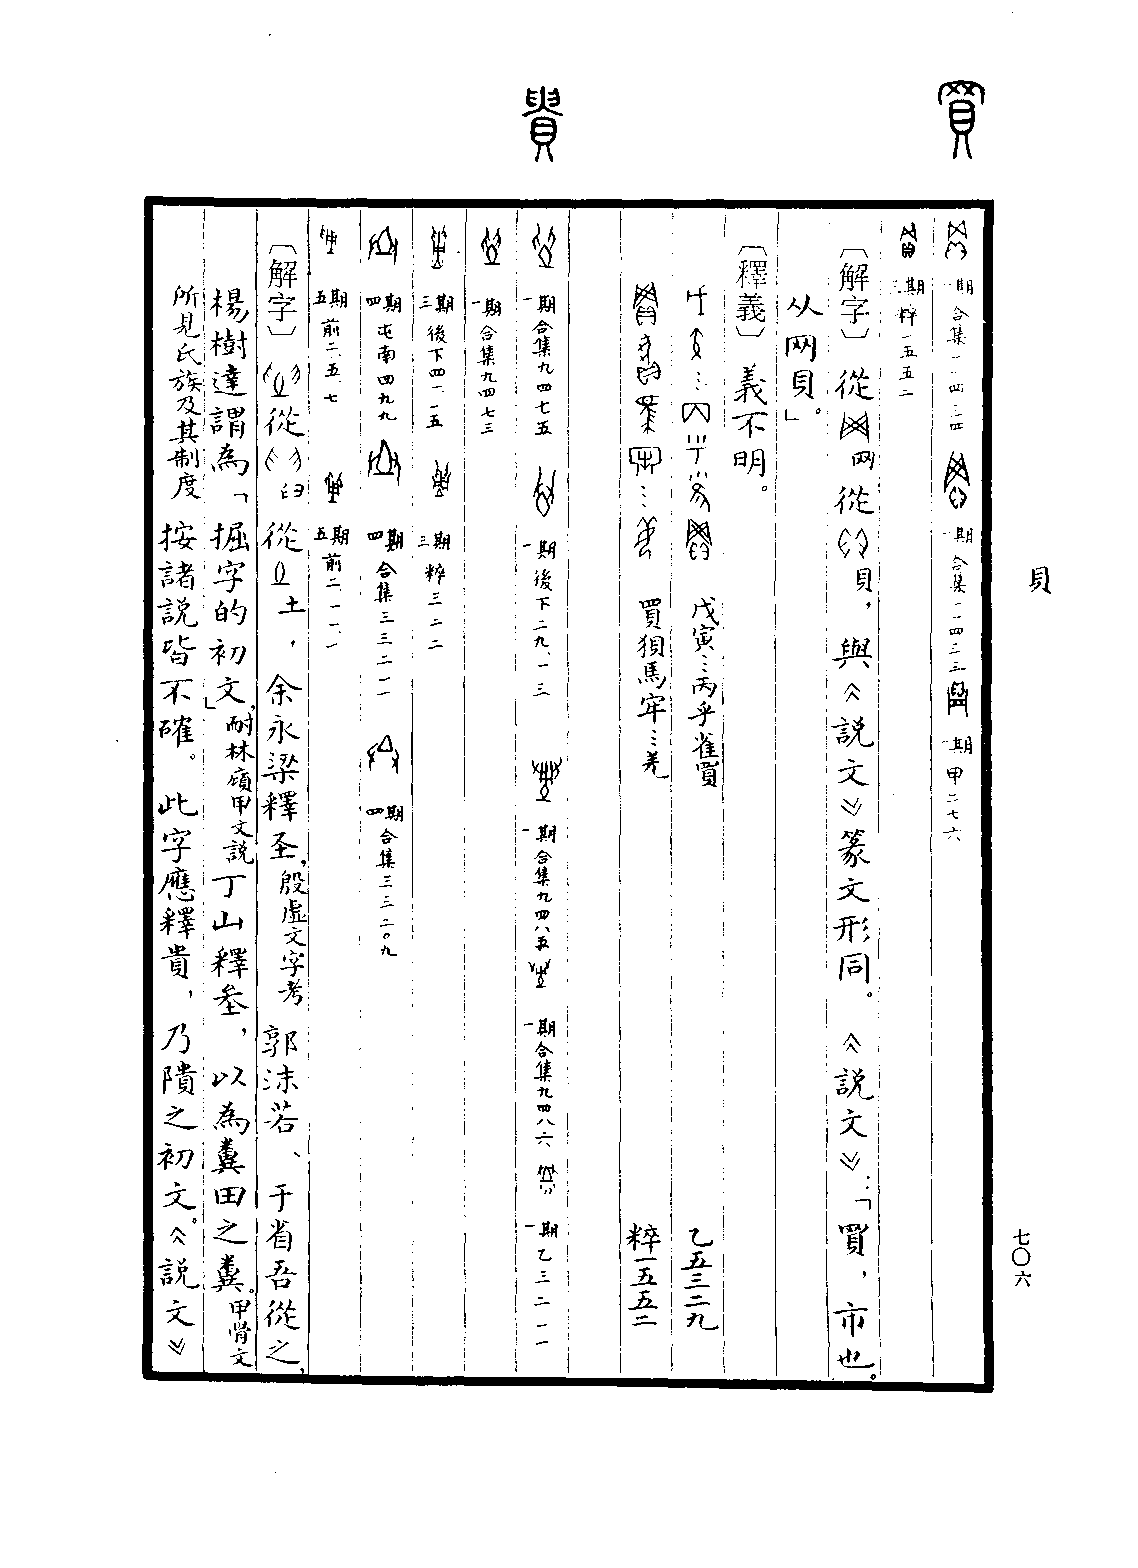 買
貴
貝
七〇六
一期 合集一一四三四 一期 合集二一四三三 一期 甲二七六
三期 粹一五五二
〔解字〕從网從貝，與《説文》篆文形同。《説文》：「買，市也。
从网貝。」
〔釋義〕義不明。
戊寅⋮丙乎雀買 乙五三二九
買狽馬牢⋮羌 粹一五五二
一期 合集九四七五 一期 後下二九．一三 一期 合集九四八五 一期 合集九四八六 一期 乙三二一一
一期 合集九四七三
三期 後下四一．一五 三期 粹三二二
四期 屯南四九九 四期 合集三三二一一 四期 合集三三二〇九
五期 前二．五．七 五期 前二．一一．一
〔解字〕從臼從土，余永梁釋圣，殷虛文字考 郭沫若、于省吾從之，
楊樹達謂為「掘字的初文」，耐林廎甲文説 丁山釋𡊄，以為糞田之糞。甲骨文
所見氏族及其制度 按諸説皆不確。此字應釋貴，乃隤之初文。《説文》